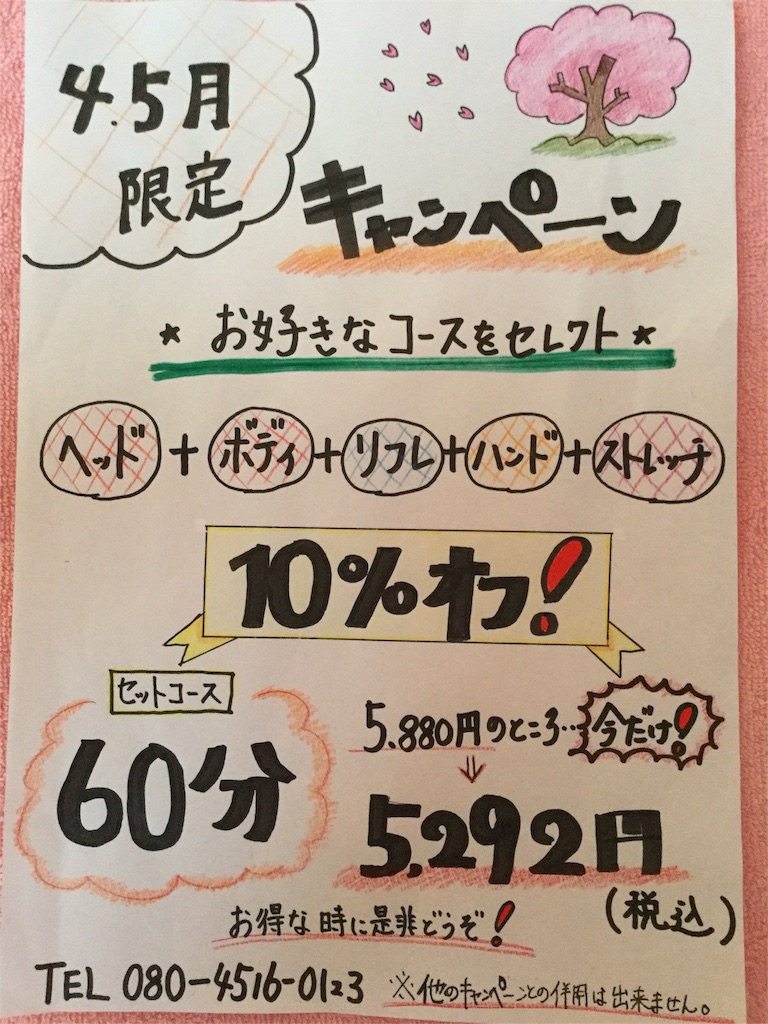 4.5月
限定
キャンペーン
★ お好きなコースをセレクト ★
ヘッド + ボディ + リフレ + ハンド + ストレッチ
10%オフ!
セットコース
60分
5.880円のところ… 今だけ!
↓
5,292円
(税込)
お得な時に是非どうぞ!
TEL 080-4516-0123
※他のキャンペーンとの併用は出来ません。